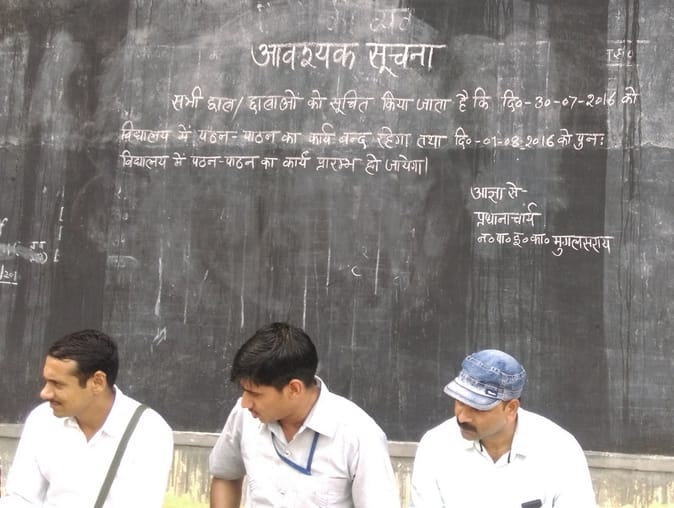 आवश्यक सूचना
सभी छात्र/छात्राओं को सूचित किया जाता है कि दि०-30-07-2016 को
विद्यालय में पठन-पाठन का कार्य बन्द रहेगा तथा दि०-01-08-2016 को पुनः
विद्यालय में पठन-पाठन का कार्य प्रारम्भ हो जायेगा।
आज्ञा से-
प्रधानाचार्य
न०पा०इ०का० मुगलसराय